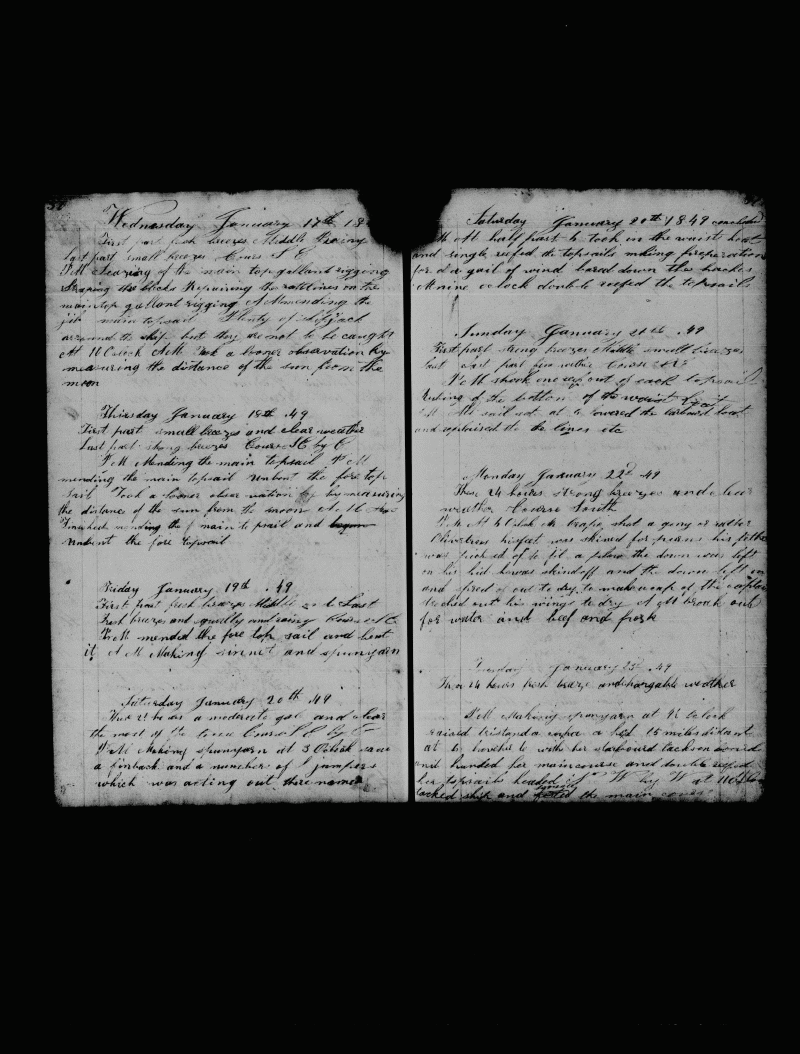 Wednesday January 17th 18
First part fresh breezes Middle
last part small breezes Cours S E
P.M clearing of the main topgallant rigging
Straping the blocks Repairing the ratelines on the
main top gallant rigging A.M mending the
jib main topsail Plenty of skipjack
arround the ship but they are not to be caught
At 10 Oclock A.M Took a looner observation by
measuring the distance of the sun from the
moon
Thirsday January 18th .49
First part small breezes and clear weather
Last part strong breezes Course S E by E
P.M Mending the main topsail P.M
mending the main topsail unbent the fore top
sail Took a looner obser vation by measuring
the distance of the sun from the moon A.M
Finished mending the main to psail and
unbent the fore topsail
Friday January 19th .49
First part fresh breezes Middle Last
Fresh breezes and squally and rainy Course
P.M mended the fore top sail and bent
it A M Making sinnet and spunyarn
Saturday January 20th .49
These 24 hours a moderate gale and clear
the most of the time Course by E
P.M Making spunyarn at 3 Oclock saw
a finback and a number of jumpers
which was acting out there names
Saturday January 20th 1849 concluded
At half past 6 took in the waist boat
and single reefed the topsails making preperation
for a gail of wind bared down the hatches
at nine o clock double reefed the topsails
Sunday January 21st .49
First part strong breezes Middle small breezes
last part fine weather Course
P.M shook one reef out of each topsail
of the bottom of the waist boat
At sail set at 6 lowered the larboard boat
and the lines etc
Monday January 22d .49
These 24 hours strong breezes and clear
weather Course South
P.M At 4 Oclock Mr shot a gony or rather
his feet was skined for purses his fethers
was picked of to fit a pillow the down was left
on his hid he was skind off and the down left on
and spred out to dry to make a cap of the captain
streched out his wings to dry A.M brook out
for water and beef and pork
Tuesday January 23d .49
These 24 hours fresh breeze and changable weather
P.M Making spunyarn at 4½ Oclock
raised tristand a cunha a hed 15 miles distant
at 6 with her starboard tacks on board
and handed for maincourse and double reefed
her topsails headed by W at 11 Oclock
tacked ship and furled the main course